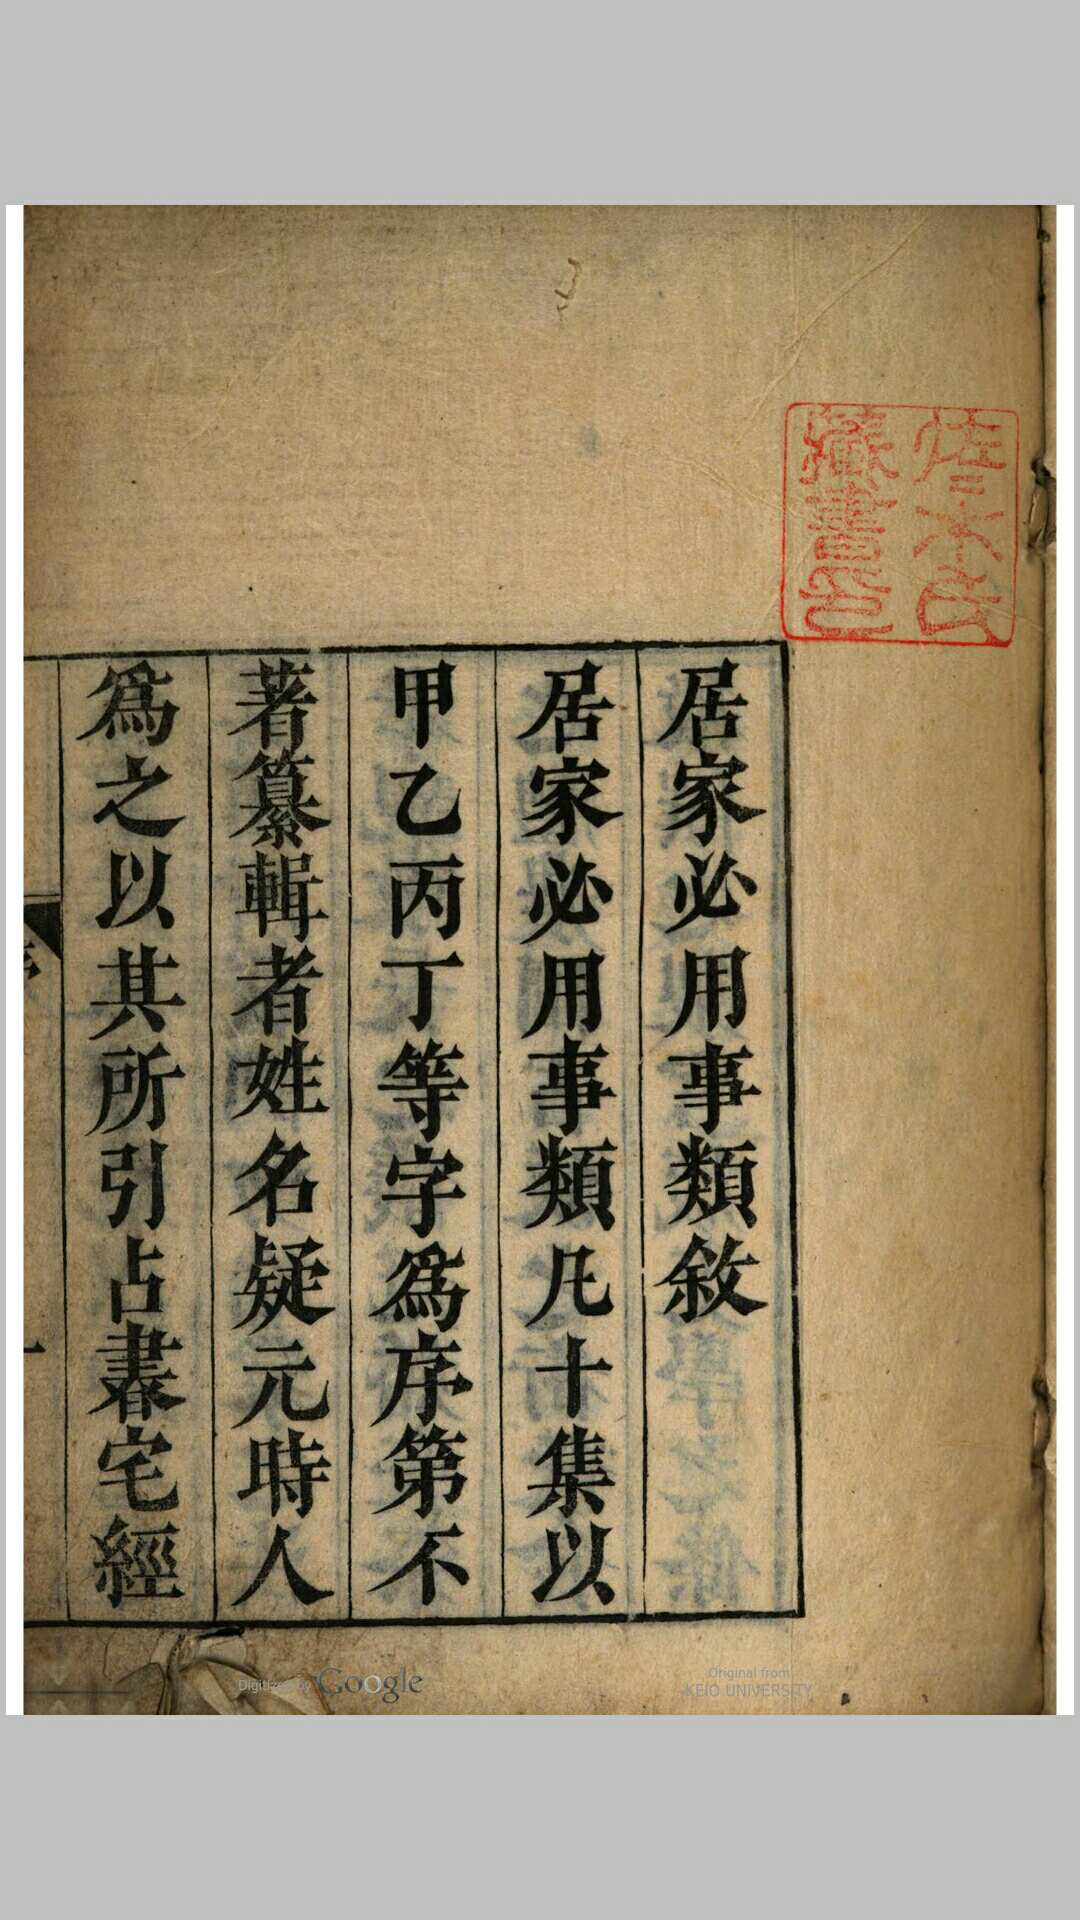 藏書印
居家必用事類敘
居家必用事類凡十集以
甲乙丙丁等字爲序第不
著纂輯者姓名疑元時人
爲之以其所引占 宅經
序
一
Digitized by Google
Original from
KEIO UNIVERSITY